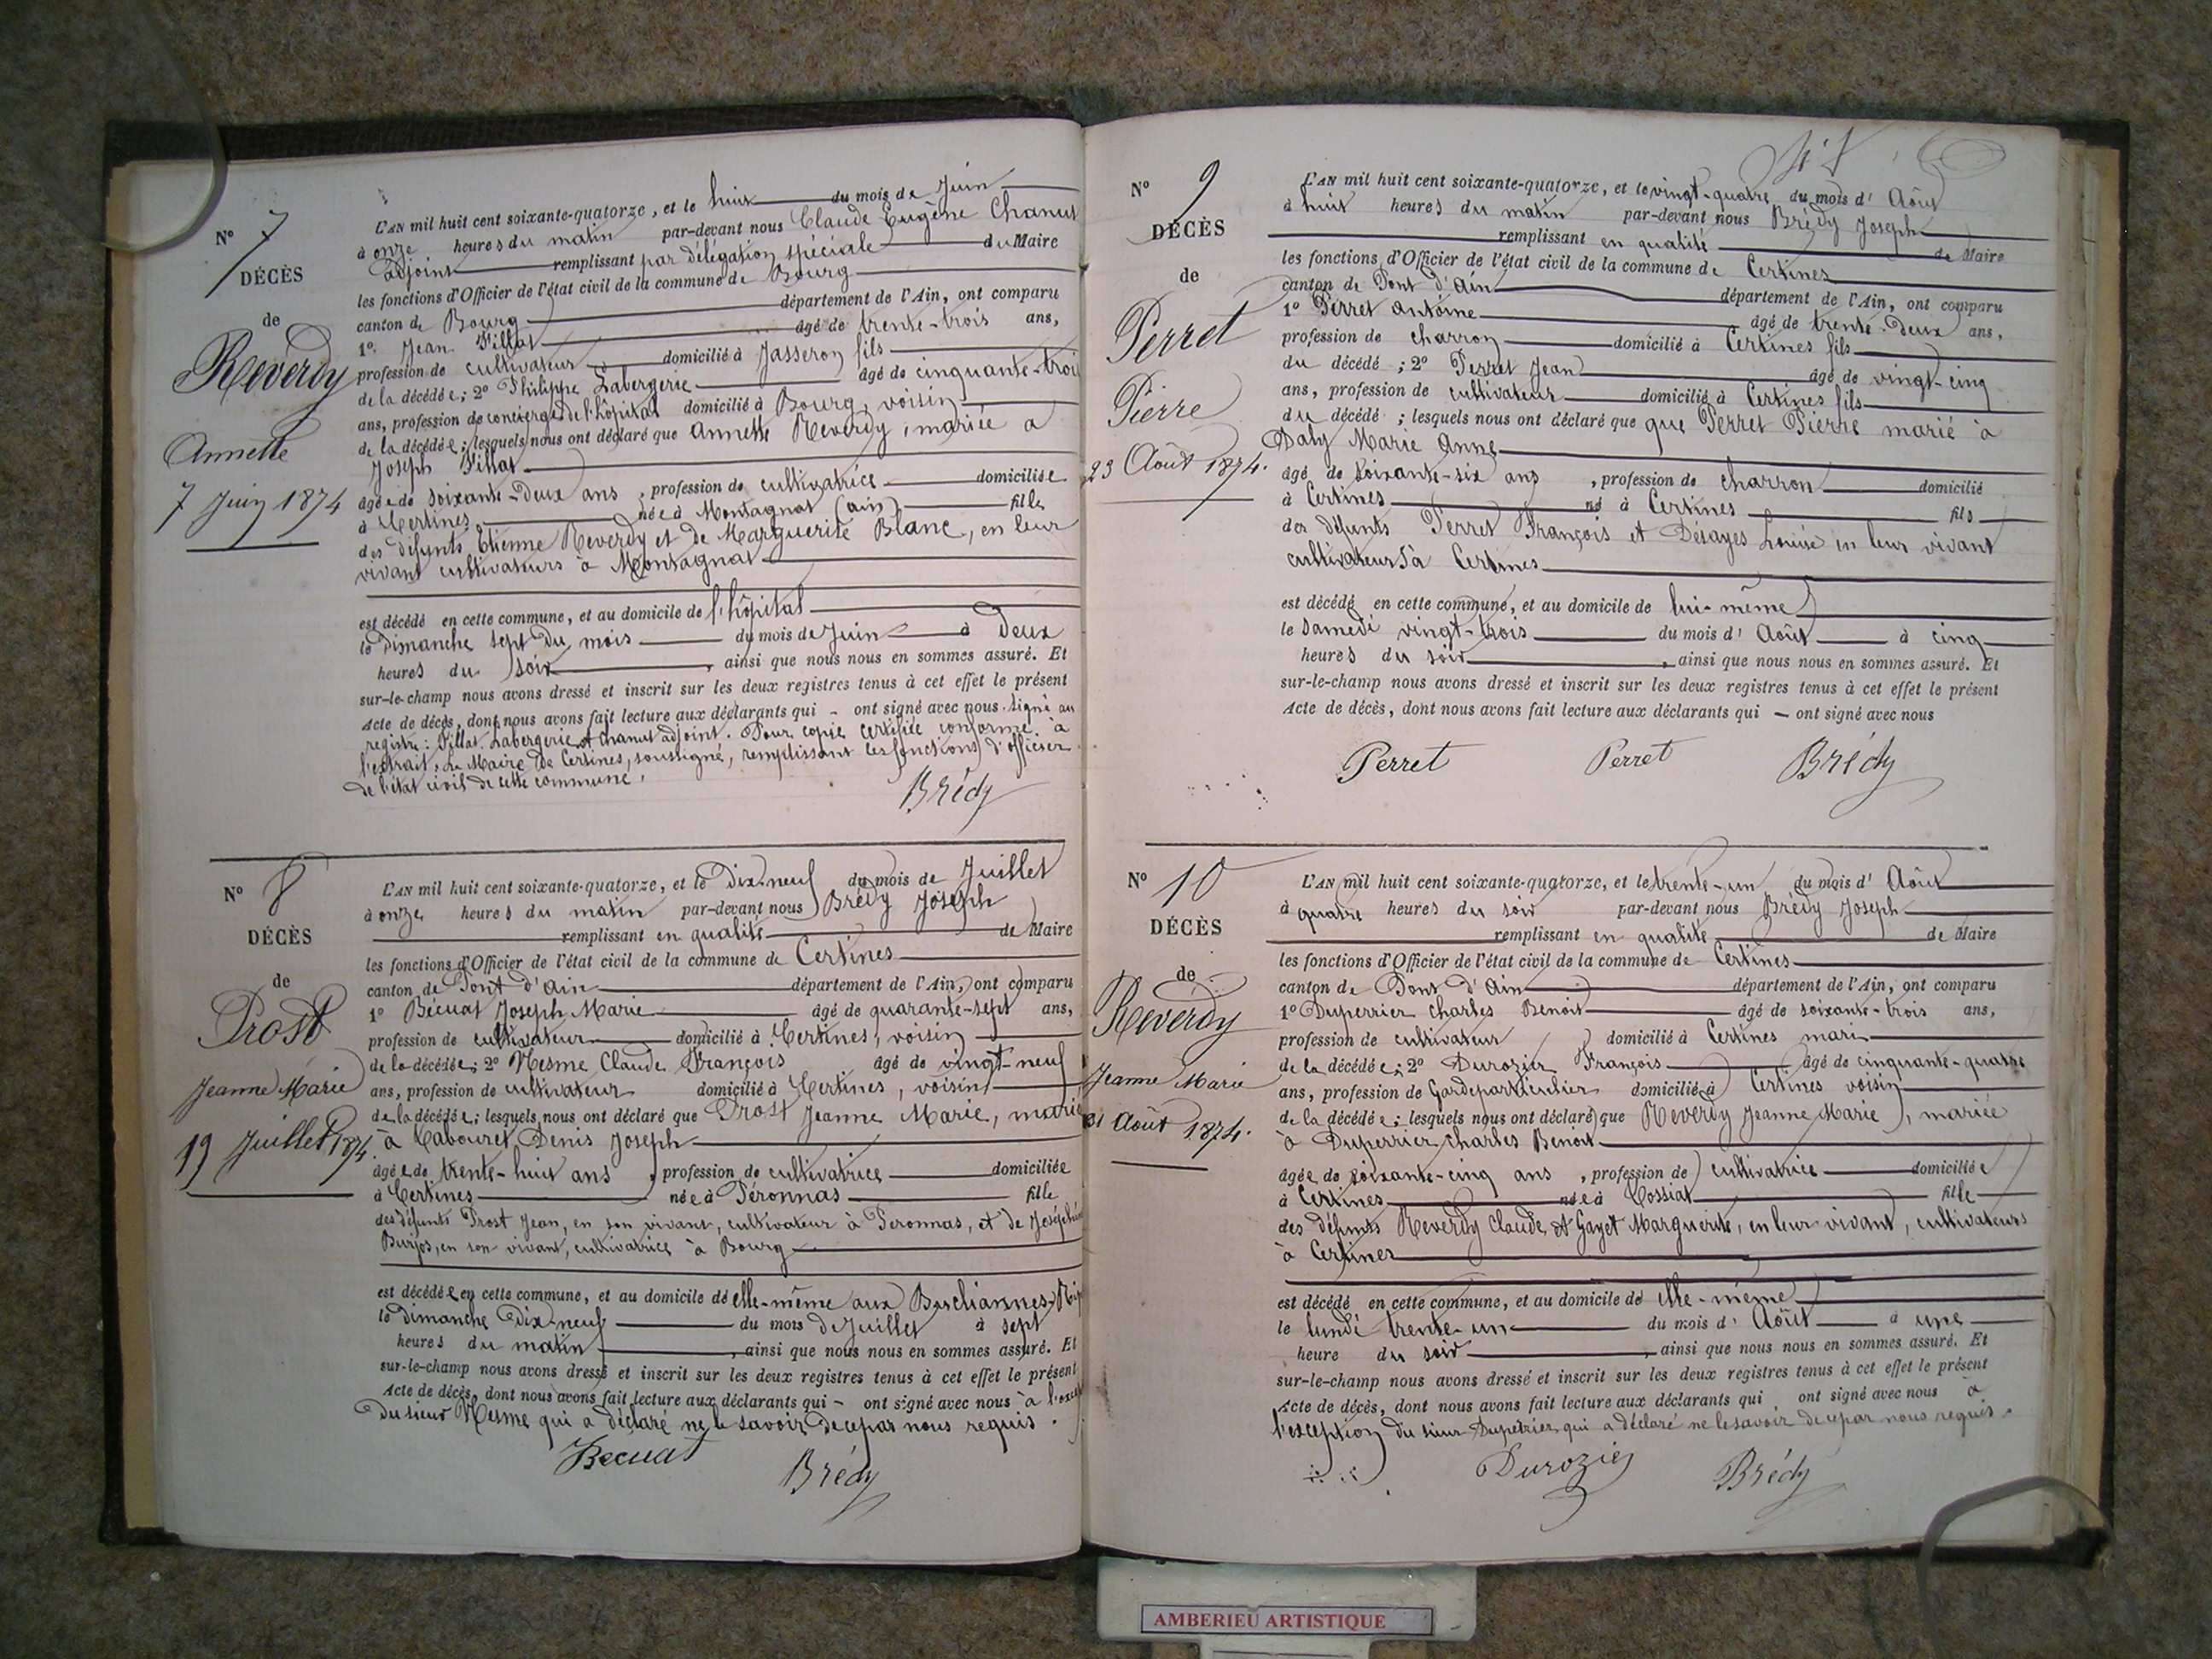 N° 7
DÉCÈS
de
Reverdy
Annette
7 Juin 1874
L'AN mil huit cent soixante-quatorze, et le huit du mois de Juin
à onze heures du matin par-devant nous Claude Eugène Chanut
adjoint remplissant par délégation spéciale du Maire
les fonctions d'Officier de l'état civil de la commune de Bourg
canton de Bourg département de l'Ain, ont comparu
1° Jean Pillat âgé de trente-trois ans,
profession de cultivateur domicilié à Jasseron fils
de la décédée; 2° Philippe Labergerie âgé de cinquante-trois
ans, profession de concierge de l'hôpital domicilié à Bourg, voisin
de la décédée; lesquels nous ont déclaré que Annette Reverdy, mariée à
Joseph Pillat
âgée de soixante-deux ans, profession de cultivatrice domiciliée
à Certines née à Montagnat (ain) fille
des défunts Etienne Reverdy et de Marguerite Blanc, en leur
vivant cultivateurs à Montagnat
est décédé en cette commune, et au domicile de l'hôpital
le Dimanche sept du mois du mois de Juin à Deux
heures du soir, ainsi que nous nous en sommes assuré. Et
sur-le-champ nous avons dressé et inscrit sur les deux registres tenus à cet effet le présent
Acte de décès, dont nous avons fait lecture aux déclarants qui - ont signé avec nous. Signé au
registre: Pillat. Labergerie et Chanut adjoint. Pour copie certifiée conforme à
l'extrait, Le Maire de Certines, soussigné, remplissant les fonctions d'officier
de l'état civil de cette commune.
Brédy
N° 8
DÉCÈS
de
Prost
Jeanne Marie
19 Juillet 1874.
L'AN mil huit cent soixante-quatorze, et le Dix-neuf du mois de Juillet
à onze heures du matin par-devant nous Brédy Joseph
remplissant en qualité de Maire
les fonctions d'Officier de l'état civil de la commune de Certines
canton de Pont d'ain département de l'Ain, ont comparu
1° Bécuat Joseph Marie âgé de quarante-sept ans,
profession de cultivateur domicilié à Certines, voisin
de la décédée; 2° Mesme Claude François âgé de vingt-neuf
ans, profession de cultivateur domicilié à Certines, voisin
de la décédée; lesquels nous ont déclaré que Prost Jeanne Marie, marié
à Cabouret Denis Joseph
âgée de trente-huit ans, profession de cultivatrice domiciliée
à Certines née à Péronnas fille
des défunts Prost Jean, en son vivant, cultivateur à Peronnas, et de
en son vivant, cultivatrice à Bourg
est décédée en cette commune, et au domicile de elle-même aux
le dimanche Dix-neuf du mois de Juillet à sept
heures du matin, ainsi que nous nous en sommes assuré. Et
sur-le-champ nous avons dressé et inscrit sur les deux registres tenus à cet effet le présent
Acte de décès, dont nous avons fait lecture aux déclarants qui - ont signé avec nous à
du sieur Mesme qui a déclaré ne le savoir de ce par nous requis.
Becuat
Brédy
N° 9
DÉCÈS
de
Perret
Pierre
23 Août 1874.
L'AN mil huit cent soixante-quatorze, et le vingt-quatre du mois d'Août
à huit heures du matin par-devant nous Brédy Joseph
remplissant en qualité de Maire
les fonctions d'Officier de l'état civil de la commune de Certines
canton de Pont d'Ain département de l'Ain, ont comparu
1° Perret antoine âgé de trente-deux ans,
profession de charron domicilié à Certines fils
du décédé; 2° Perret Jean âgé de vingt-cinq
ans, profession de cultivateur domicilié à Certines fils
du décédé; lesquels nous ont déclaré que que Perret Pierre marié à
Daly Marie Anne
âgé de soixante-six ans, profession de charron domicilié
à Certines né à Certines fils
des défunts Perret François et Désayes Louise en leur vivant
cultivateurs à Certines
est décédé en cette commune, et au domicile de lui-même
le Samedi vingt-trois du mois d'Août à cinq
heures du soir, ainsi que nous nous en sommes assuré. Et
sur-le-champ nous avons dressé et inscrit sur les deux registres tenus à cet effet le présent
Acte de décès, dont nous avons fait lecture aux déclarants qui - ont signé avec nous
Perret Perret Brédy
N° 10
DÉCÈS
de
Reverdy
Jeanne Marie
31 Août 1874.
L'AN mil huit cent soixante-quatorze, et le trente-un du mois d'Août
à quatre heures du soir par-devant nous Brédy Joseph
remplissant en qualité de Maire
les fonctions d'Officier de l'état civil de la commune de Certines
canton de Pont d'Ain département de l'Ain, ont comparu
1° Duperrier Charles Benoit âgé de soixante-trois ans,
profession de cultivateur domicilié à Certines mari
de la décédée; 2° Durozier François âgé de cinquante-quatre
ans, profession de Garde particulier domicilié à Certines voisin
de la décédée; lesquels nous ont déclaré que Reverdy Jeanne Marie, mariée
à Duperrier Charles Benoit
âgée de soixante-cinq ans, profession de cultivatrice domiciliée
à Certines née à Tossiat fille
des défunts Reverdy Claude et Gayet Marguerite, en leur vivant, cultivateurs
à Certines
est décédé en cette commune, et au domicile de elle-même
le lundi trente-un du mois d'Août à une
heure du soir, ainsi que nous nous en sommes assuré. Et
sur-le-champ nous avons dressé et inscrit sur les deux registres tenus à cet effet le présent
Acte de décès, dont nous avons fait lecture aux déclarants qui ont signé avec nous à
l'exception du sieur Duperrier qui a déclaré ne le savoir de ce par nous requis.
Durozier
Brédy
AMBERIEU ARTISTIQUE